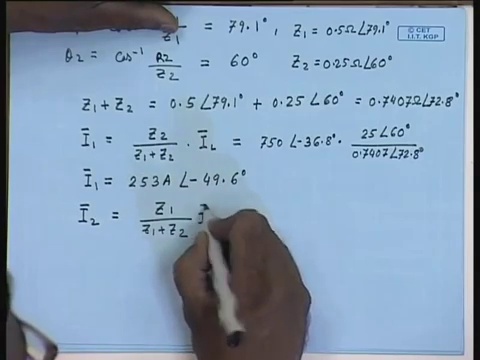 Z₁ = 79.1°, Z₁ = 0.5Ω∠79.1°
© CET
I.I.T. KGP
θ₂ = Cos⁻¹ R₂/Z₂ = 60° Z₂ = 0.25Ω∠60°
Z₁ + Z₂ = 0.5∠79.1° + 0.25∠60° = 0.7407Ω∠72.8°
Ī₁ = Z₂/(Z₁+Z₂) · Ī_L = 750∠-36.8° · 25∠60°/0.7407∠72.8°
Ī₁ = 253A ∠-49.6°
Ī₂ = Z₁/(Z₁+Z₂) Ī